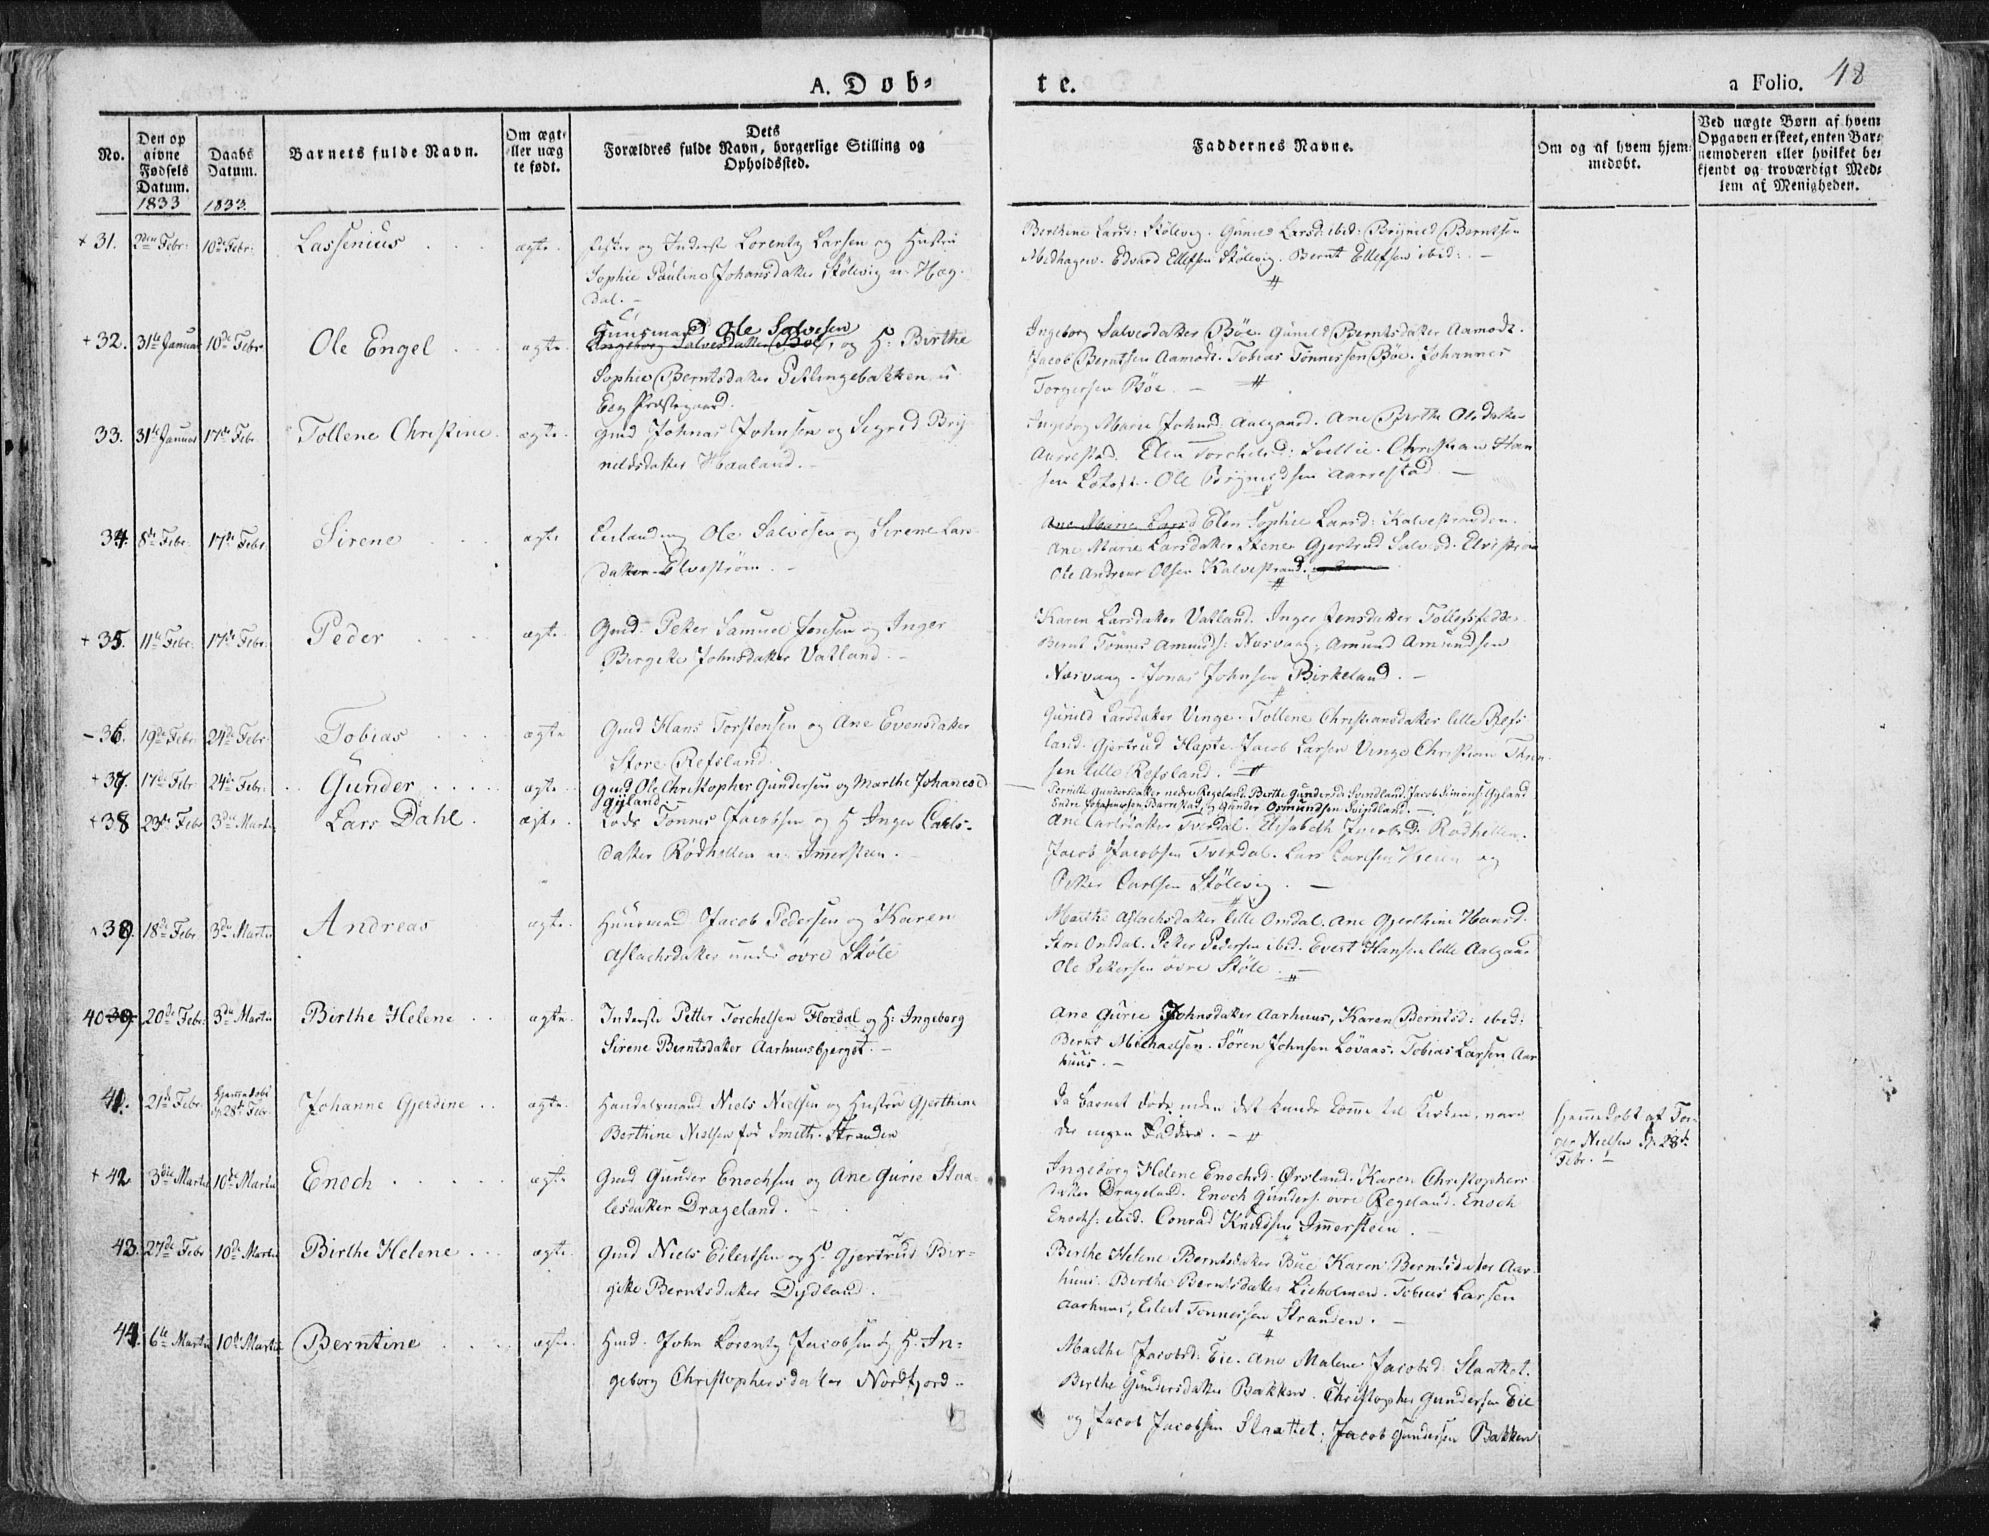 A. Dob-
te.
a Folio. 48
No.
Den op
givne
Fødsels
Datum.
1833
Daabs
Datum.
1833.
Barnets fulde Navn.
Om ægte
eller uæg
te født.
Dets
Forældres fulde Navn, borgerlige Stilling og
Opholdssted.
Faddernes Navne.
Om og af hvem hjem-
medøbt.
Ved uægte Børn af hvem
Opgaven er skeet, enten Bar-
nemoderen eller hvilket be-
kjendt og troværdigt Med-
lem af Menigheden.
+ 31. 2den Febr: 10de Febr: Lassenius ægte og Inderste Lorentz Larsen og Hustru
Sophie Pauline Johansdatter Stølevig n. Hæg-
dal.
Berthine Larsd: Stølevig. Gunild Larsd. ibid: Brynild Berntsen
Edvard Ellefsen Stølevig. Bernt Ellefsen ibid:
+ 32. 31te Januar 10de Febr Ole Engel ægte Huusmand Ole Salvesen
Ingeborg Salvesdatter Bøe, og H: Birthe
Sophie Berntsdatter Getlingebakken u
Eeg Præstegaard.
Ingeborg Salvesdatter Bøe. Gunild Berntsdatter Aamodt.
Jacob Berntsen Aamodt. Tobias Tønnessen Bøe. Johannes
Torgersen Bøe.
33. 31te Januar 17de Febr Tollene Christine ægte Gmd Johnas Johnsen og Segrid Bry-
nildsdatter Haaland.
Ingeborg Marie Johnsd: Aalgaard. Ane Berthe Olsdatter
Aarrestad. Elen Torchelsd: Christian Han
sen Ole Brynildsen Aarrestad
34. 8de Febr. 17de Febr Sirene ægte Ole Salvesen og Sirene Lars-
datter Elvestrøm.
Ane Marie Larsd Elen Sophie Larsd: Kalvestranden.
Ane Marie Larsdatter Stene Gjertrud Salvesd. Elvestrøm
Ole Andreas Olsen Kalvestrand.
+ 35. 11te Febr: 17de Febr: Peder ægte Gmd. Peter Samuel Jensen og Inger
Bergite Johnsdatter Vatland.
Karen Larsdatter Vatland. Inger Jensdatter
Bernt Tønnes Amunds: Nusvaag, Amund Amundsen
Nusvaag. Jonas Johnsen Birkeland.
- 36. 19de Febr 24de Febr Tobias ægte Gmd Hans Torstensen og Ane Evensdatter
Store Refsland.
Gunild Larsdatter Vinge. Tollene Christiansdatter lille Refs
land. Gjertrud Jacob Larsen Vinge Christian
sen lille Refsland.
+ 37. 17de Febr 24de Febr: Gunder ægte Gmd Ole Christopher Gundersen og Marthe Johanesd
Gyland
Gundersdatter nedre Regeland. Berthe Gundersda Svindland. Jacob Simons: Gyland
og Gunder Osmundsen Svindland.
+ 38 23de Febr 3die Martii Lars Dahl ægte Lods Tønnes Jacobsen og H Inger Carls-
datter Rødhellen n. Imersteen.
Ane Carlsdatter Tverdal. Elisabeth Jacobsd. Rødhellen.
Jacob Jacobsen Tverdal. Lars Larsen og
Petter Carlsen Stølevig.
39. 18de Febr 3die Martii Andreas ægte Huusmand Jacob Pedersen og Karen
Aslachsdatter under øvre Støle
Marthe Aslachsdatter lille Onsdal. Ane Gjerthine Hansd.
Onsdal. Petter Pedersen ibid. Evert Hansen lille
Ole Pettersen øvre Støle.
40 39. 20de Febr: 3die Martii Birthe Helene ægte Inderste Petter Torchelsen Flordal og H: Ingeborg
Sirene Berntsdatter Aarhuusbjerget.
Ane Gurie Johnsdatter Aarhuus, Karen Berntsd: ibid:
Bernt Michaelsen. Søren Johnsen Løvaas. Tobias Larsen Aar
huus.
41. 21de Febr. Hjemmedøbt
28de Febr. Johanne Gjerdine ægte Handelsmand Niels Nielsen og Hustru Gjerthine
Berthine Nielsen fød Smith. Stranden
Da Barnet døde inden det kunde komme til Kirken, vare
der ingen Faddere.
Hjemmedøbt af
Nielsen d. 28de
Febr.
+ 42 3die Martii 10de Martii Enoch ægte Gmd Gunder Enochsen og Ane Gurie Staa-
lesdatter Drageland.
Ingeborg Helene Enochsd. Ørsland. Karen Christophers
datter Drageland. Enoch Gunders. øvre Regeland. Enoch
Enochs: ibid. Conrad Knudsen Imersteen.
43. 27de Febr 10de Martii Birthe Helene ægte Gmd Niels Eilertsen og H: Gjertrud Bir-
gitte Berntsdatter Dydland.
Birthe Helene Berntsdatter Bue Karen Berntsdatter Aar-
huus. Birthe Berntsdatter Lieholmen. Tobias Larsen
Aarhuus, Eilert Tønnessen Stranden.
44. 6te Martii 10de Martii Berntine ægte Hmd. John Lorentz Jacobsen og H. In-
geborg Christophersdatter Nordfjord
Marthe Jacobsd: Eie. Ane Malene Jacobsd: Slaattet.
Birthe Gundersdatter Bakken. Christopher Gundersen Eie
og Jacob Jacobsen Slaattet; Jacob Gundersen Bakken